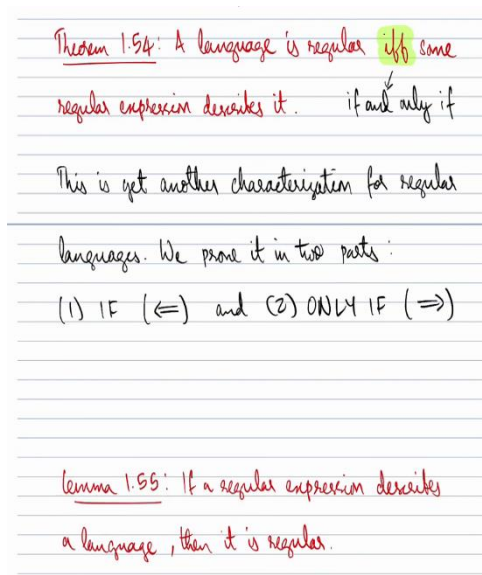 Theorem 1.54: A language is regular iff some
regular expression describes it. if and only if
This is yet another characterization for regular
languages. We prove it in two parts:
(1) IF (⇐) and (2) ONLY IF (⇒)
Lemma 1.55: If a regular expression describes
a language, then it is regular.